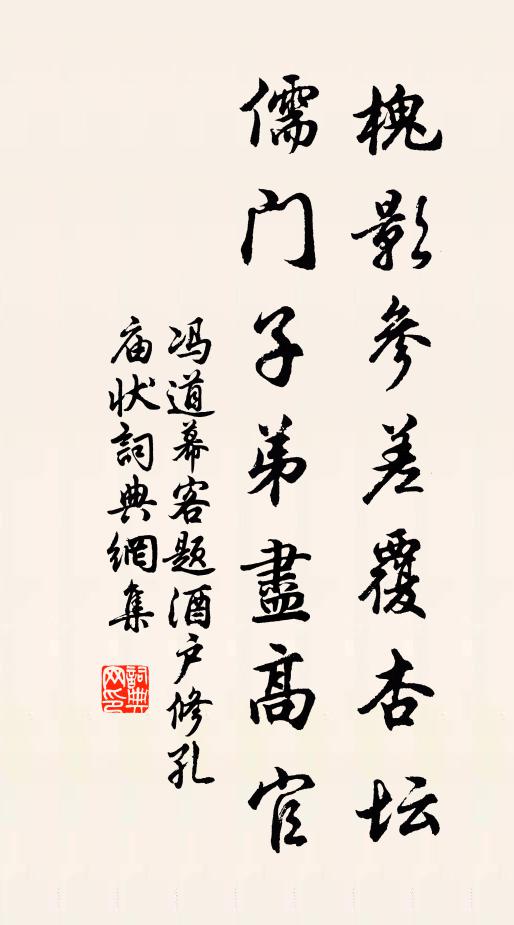 槐影参差覆杏坛
儒门子弟盡高官
冯道幕客题酒户修孔
庙状詞典網集
詞典网印